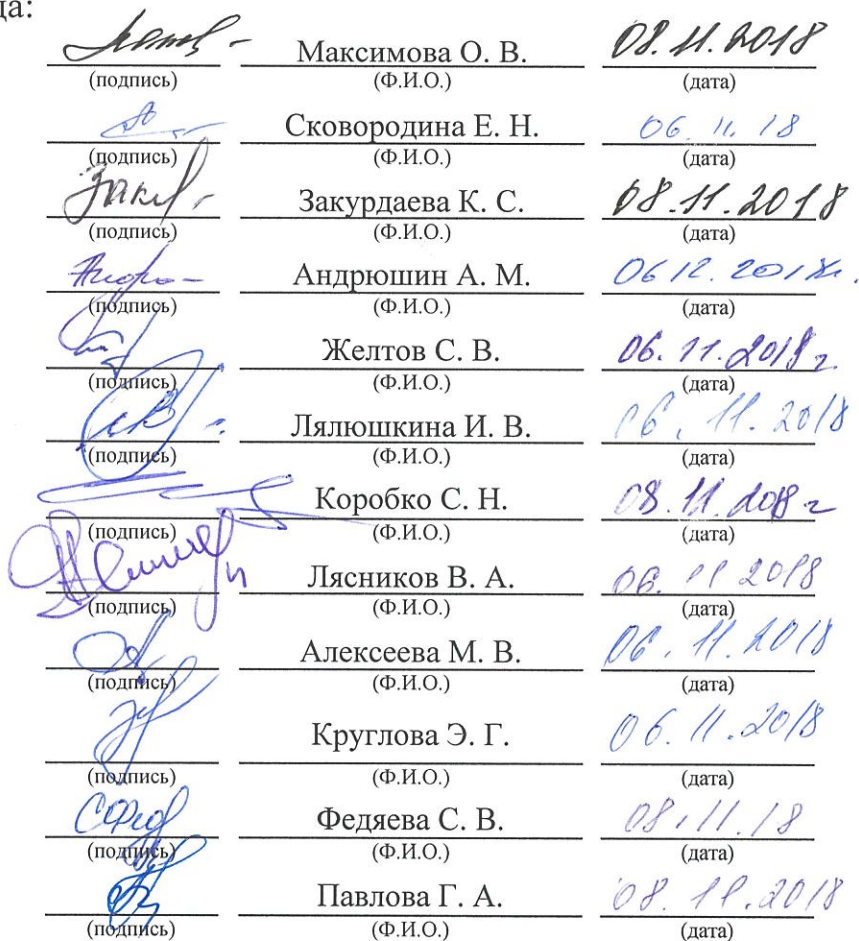 да:
Максимова О. В. 08.11.2018
(подпись) (Ф.И.О.) (дата)
Сковородина Е. Н. 06.11.18
(подпись) (Ф.И.О.) (дата)
Закурдаева К. С. 08.11.2018
(подпись) (Ф.И.О.) (дата)
Андрюшин А. М. 06 12. 2018г.
(подпись) (Ф.И.О.) (дата)
Желтов С. В. 06.11.2018г
(подпись) (Ф.И.О.) (дата)
Лялюшкина И. В. 06.11.2018
(подпись) (Ф.И.О.) (дата)
Коробко С. Н. 08.11.2018 г
(подпись) (Ф.И.О.) (дата)
Лясников В. А. 06.11 2018
(подпись) (Ф.И.О.) (дата)
Алексеева М. В. 06.11.2018
(подпись) (Ф.И.О.) (дата)
Круглова Э. Г. 06.11.2018
(подпись) (Ф.И.О.) (дата)
Федяева С. В. 08.11.18
(подпись) (Ф.И.О.) (дата)
Павлова Г. А. 08.11.2018
(подпись) (Ф.И.О.) (дата)